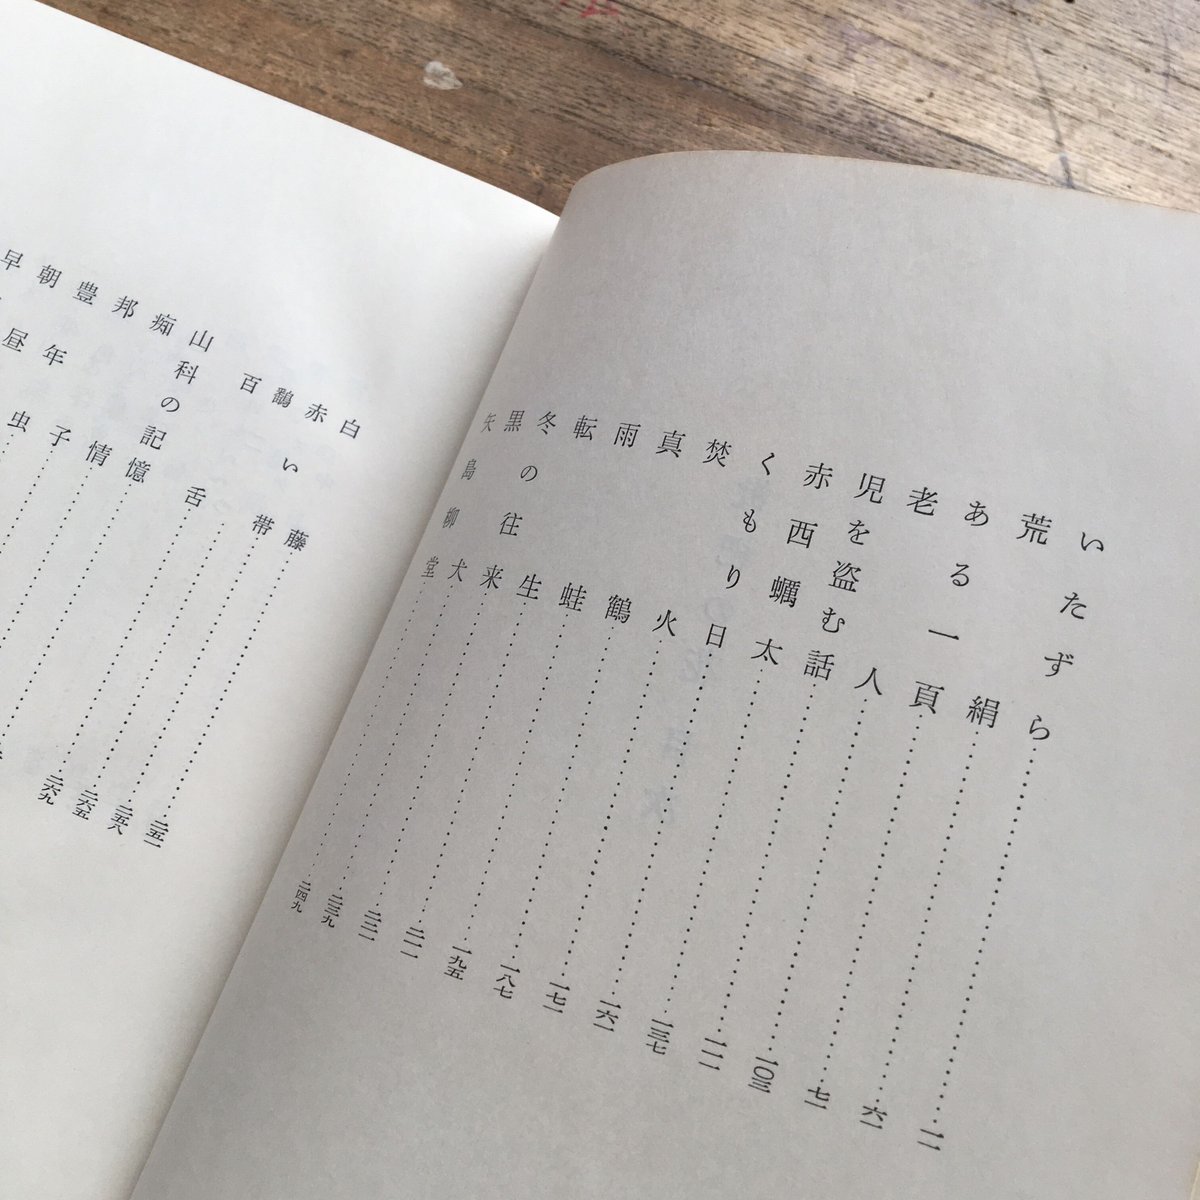 いたずら……一一
荒絹……六一
ある一頁……七一
老人……一〇三
児を盗む話……一一一
赤西蠣太……一三七
くもり日……一六一
焚火……一七一
真鶴……一八七
雨蛙……一九五
転生……二一一
冬の往来……二三一
黒犬……二三九
矢島柳堂……二四九
白藤……二五一
赤い帯……二五八
鷭……二六五
百舌……二六九
山科の記憶……
痴情……
邦子……
豊年虫……
朝昼
早